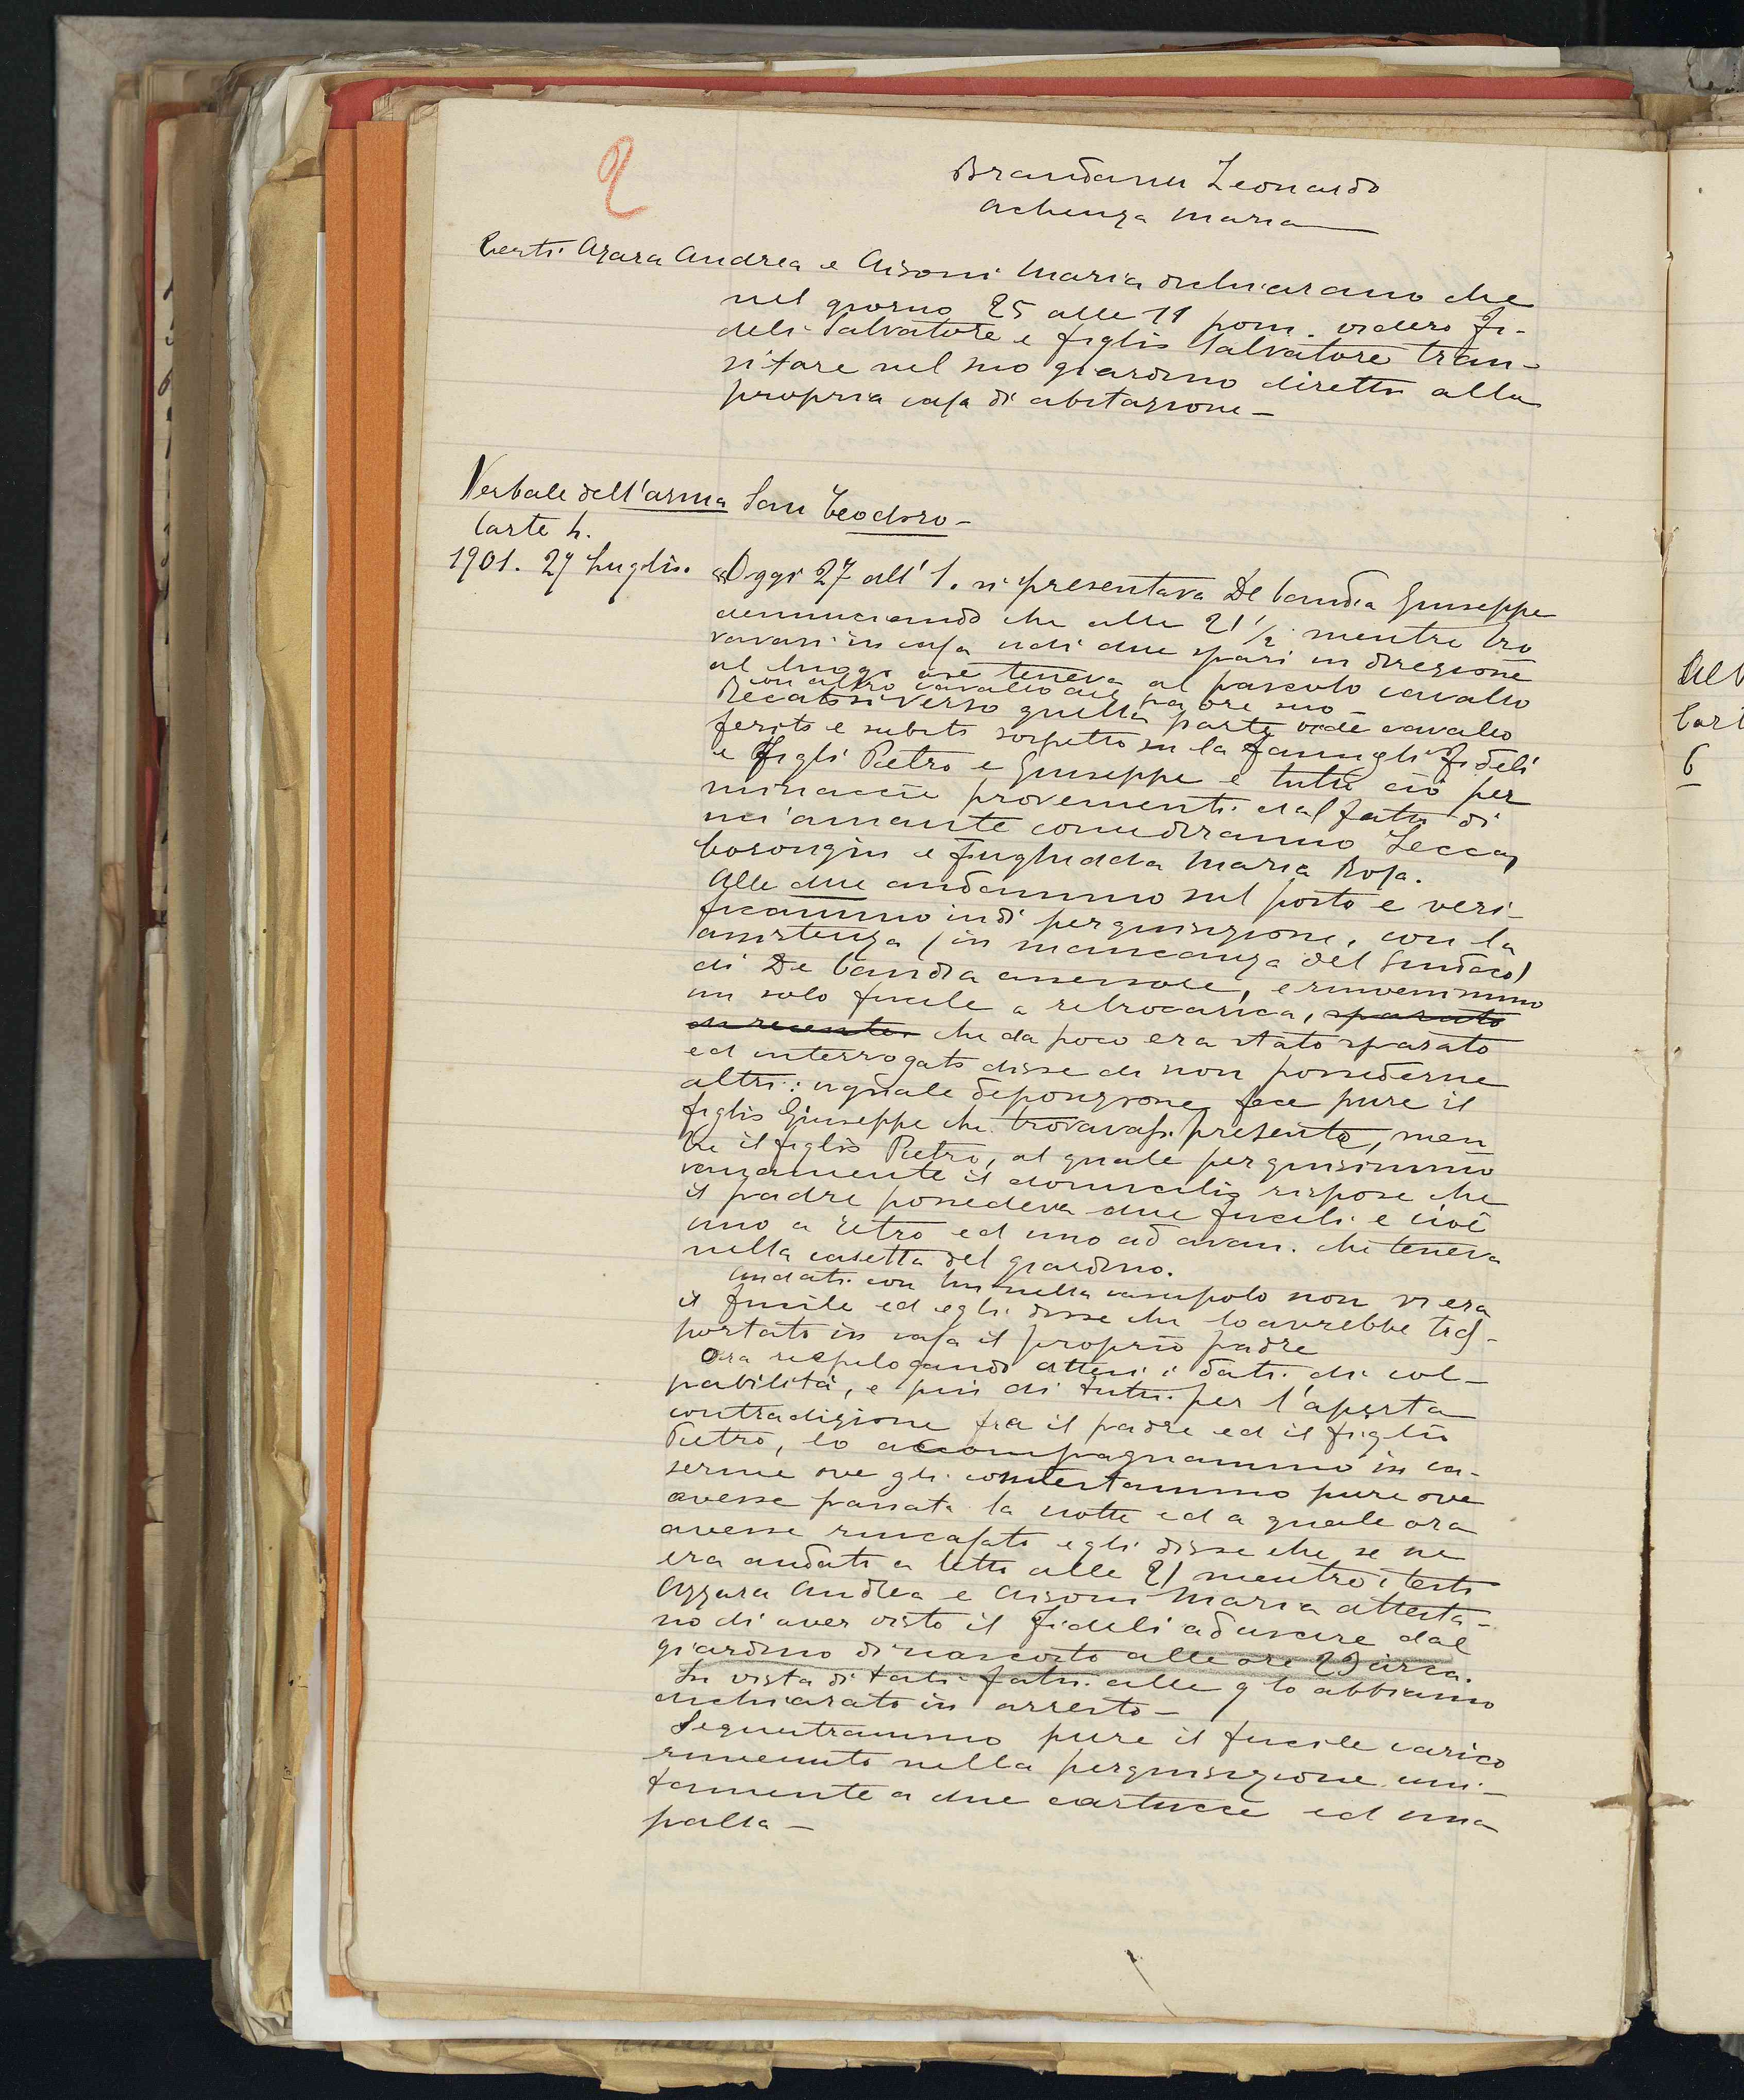 2
Brandanu Leonardo
Achenza Maria
Testi Azara Andrea e Aisoni Maria dichiarano che
nel giorno 25 alle 11 pom. videro Fi-
deli Salvatore e figlio Salvatore tran-
sitare nel suo giardino diretti alla
propria casa di abitazione -
Verbale dell'arma San Teodoro -
Carte 4.
1901. 27 Luglio. "Oggi 27 all'1. si presentava De Candia Giuseppe
denunciando che alle 21 1/2 mentre tro
vavasi in casa udì due spari in direzione
al luogo ove teneva al pascolo cavallo
con altro cavallo del
Recatosi verso quella parte vide cavallo
ferito e subito sospettò su la famigli Fideli
e figli Pietro e Giuseppe e tutto ciò per
minaccie provenienti dal fatto di
un'amante comediranno Lecca,
Cosongiu e Fughedda Maria Rosa.
Alle due andammo sul posto e veri-
ficammo indi perquisizione, con la
assistenza (in mancanza del Sindaco)
di De Candia assessore, e rinvenimmo
un solo fucile a retrocarica, sparato
di recente che da poco era stato sparato
ed interrogato disse di non possederne
altri: uguale deposizione fece pure il
figlio Giuseppe che trovavasi presente, men
tre il figlio Pietro, al quale perquisimmo
vanamente il domicilio rispose che
il padre possedeva due fucili e cioè
uno a retro ed uno ad avan. che teneva
nella casetta del giardino.
Andati con lui nella casupola non vi era
il fucile ed egli disse che lo avrebbe tras-
portato in casa il proprio padre
Ora riepilogando attesi i dati di col-
pabilità, e più di tutti per l'aperta
contradizione fra il padre ed il figlio
Pietro, lo accompagnammo in ca-
serme ove gli contestammo pure ove
avesse passata la notte ed a quale ora
avesse rincasato egli disse che se ne
era andato a letto alle 21 mentre i testi
Azzara Andrea e Aisoni Maria attesta-
no di aver visto il Fideli ad uscire dal
giardino di nascosto alle ore 23 circa.
In vista di tali fatti alle 9 lo abbiamo
dichiarato in arresto -
Sequestrammo pure il fucile carico
rinvenuto nella perquisizione uni-
tamente a due cartucce ed una
palla -
6